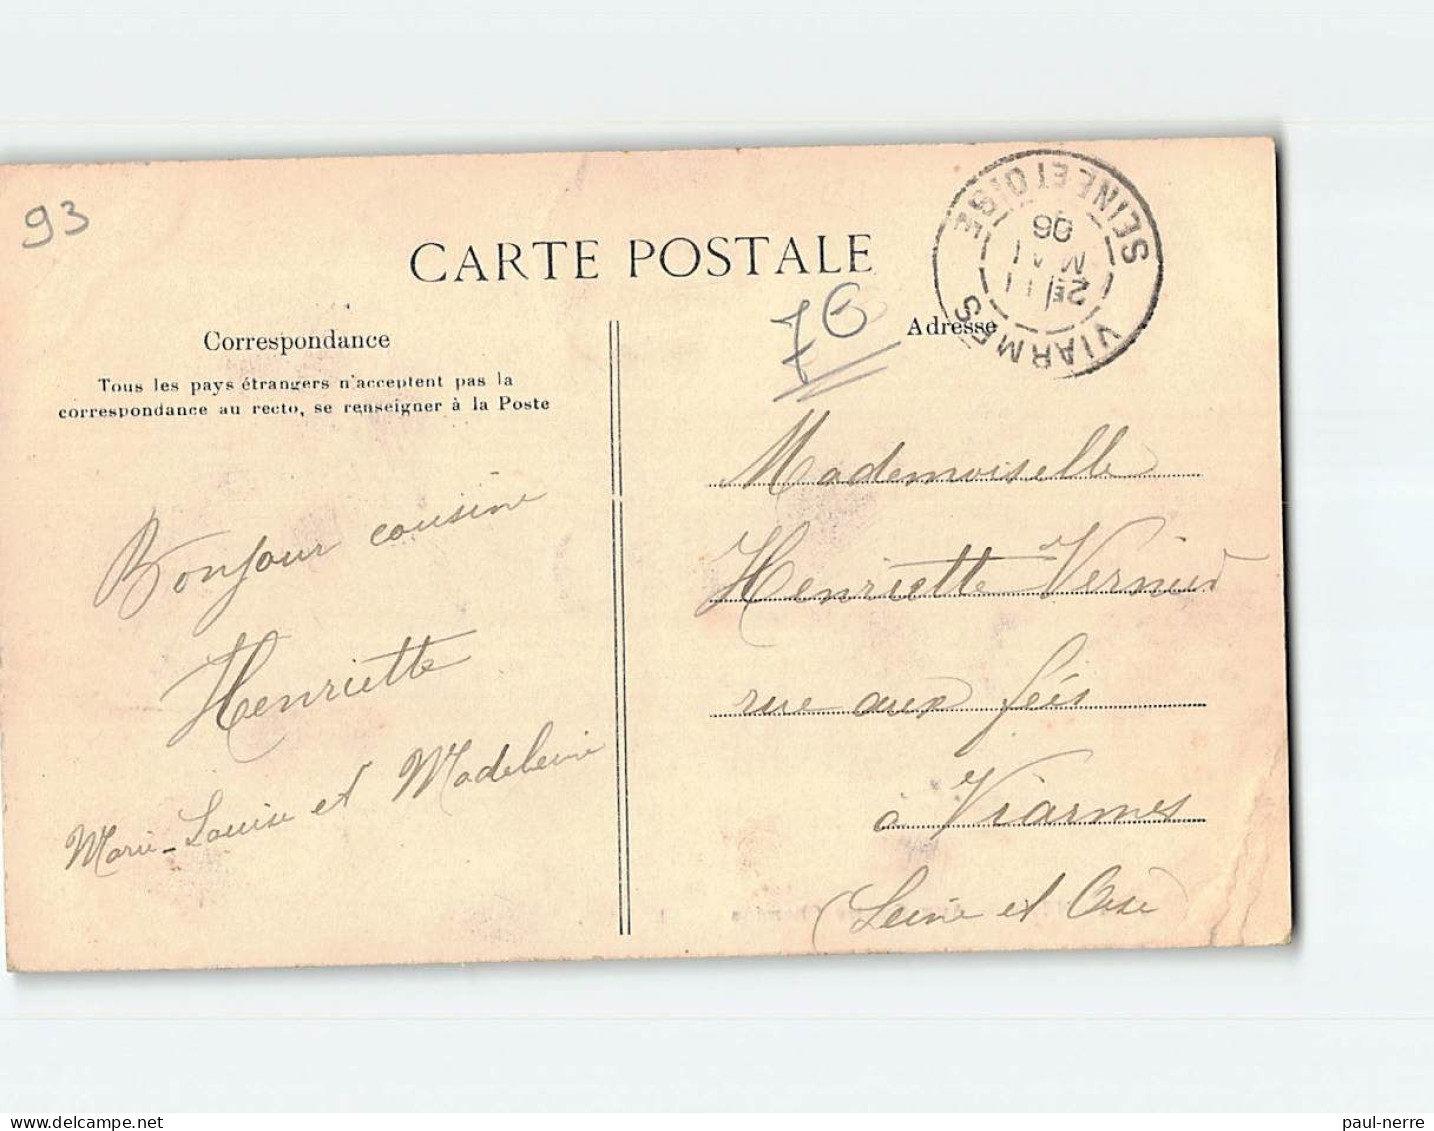 93
CARTE POSTALE
76
Correspondance
Adresse
Tous les pays étrangers n'acceptent pas la
correspondance au recto, se renseigner à la Poste
SEINE ET OISE
VIARMES
2E
11
MAI
06
Bonjour cousine
Henriette
Marie-Louise et Madeleine
Mademoiselle
Henriette Vernier
rue aux feés
à Viarmes
(Seine et Oise)
delcampe.net
paul-nerre